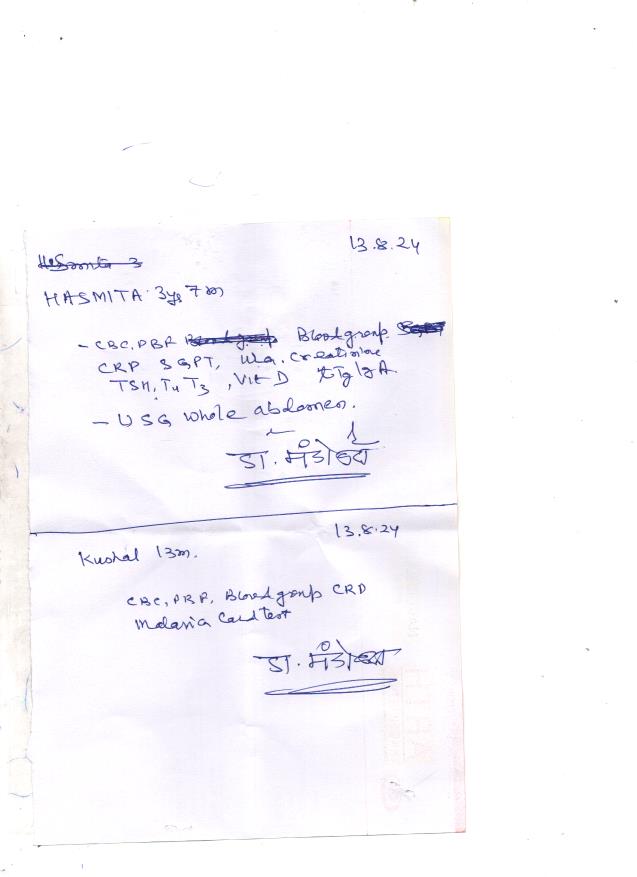 13.8.24
HASMITA 3ys 7m
- CBC, PBF Blood group
CRP SGPT, Urea, Creatinine
TSH, T4 T3, Vit D tTg IgA
- USG whole abdomen.
डा.
13.8.24
Kushal 13m.
CBC, PBF, Blood group CRP
Malaria Card test
डा.